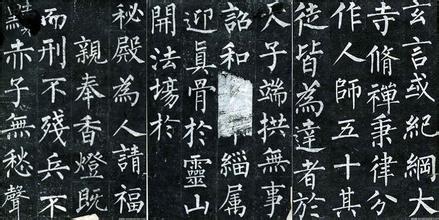 玄言或紀綱大
寺脩禪秉律分
作人師五十其
徒皆為達者於
天子端拱無事
詔和緇属
迎真骨於靈山
開法場於
秘殿為人請福
親奉香燈既
而刑不殘兵不
黷赤子無愁聲